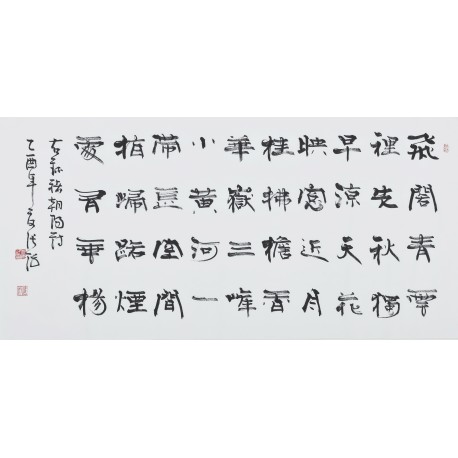 飛閣青雲
裡先秋獨
早涼天花
映窓近月
桂拂檐香
華嶽三峰
小黃河一
帶長空間
指歸路煙
處有垂楊
乙酉年